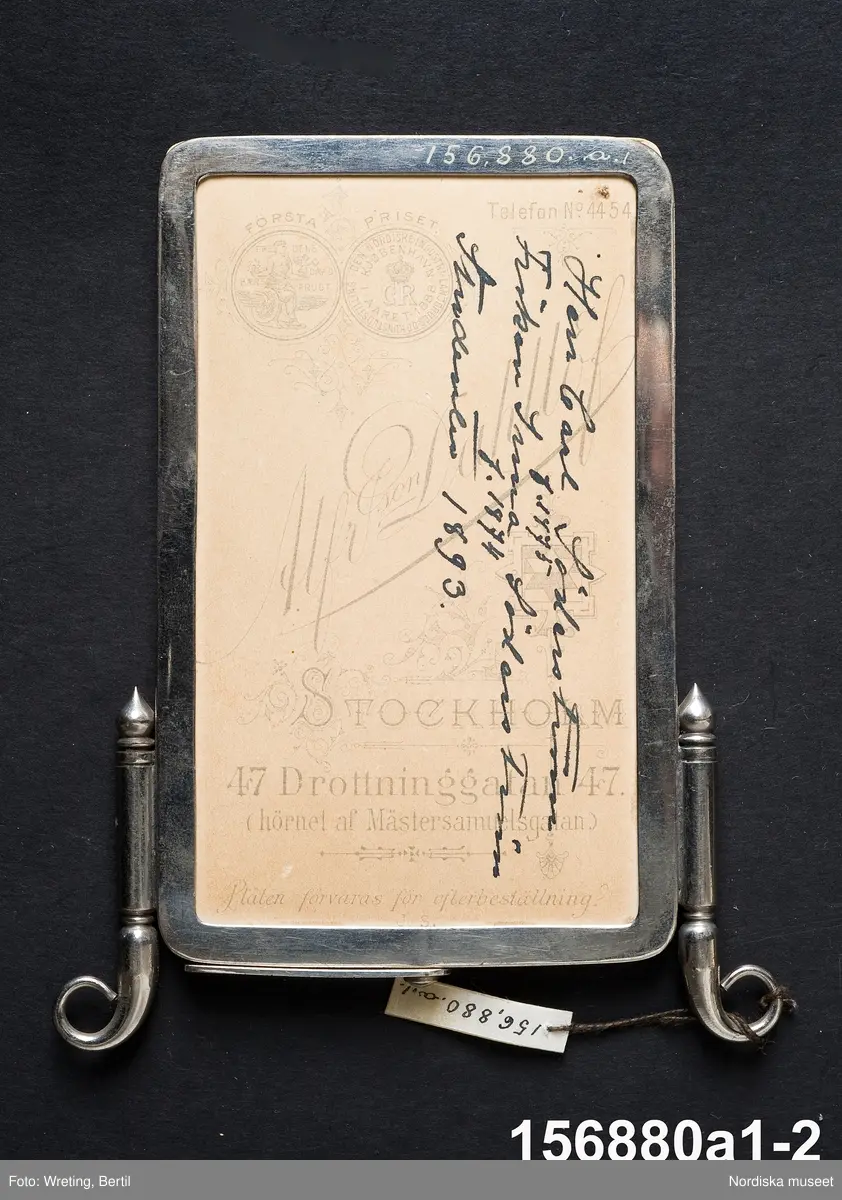 156,880.a.1
Telefon No 4454
FÖRSTA PRISET
KJÖBENHAVN
AARET 1888
Herr Carl Söderström
f. 1875
Fröken Anna Söderström
f. 1874
Studenter 1893.
STOCKHOLM
47 Drottninggatan 47.
(hörnet af Mästersamuelsgatan)
Plåten förvaras för efterbeställning.
156,880 a.1.
156880a1-2
Foto: Wreting, Bertil
Nordiska museet